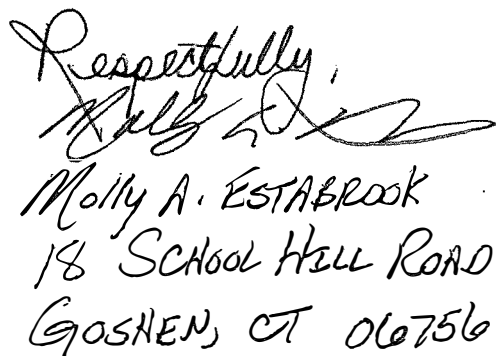 Respectfully,
Molly A. ESTABROOK
18 SCHOOL HILL ROAD
GOSHEN, CT 06756